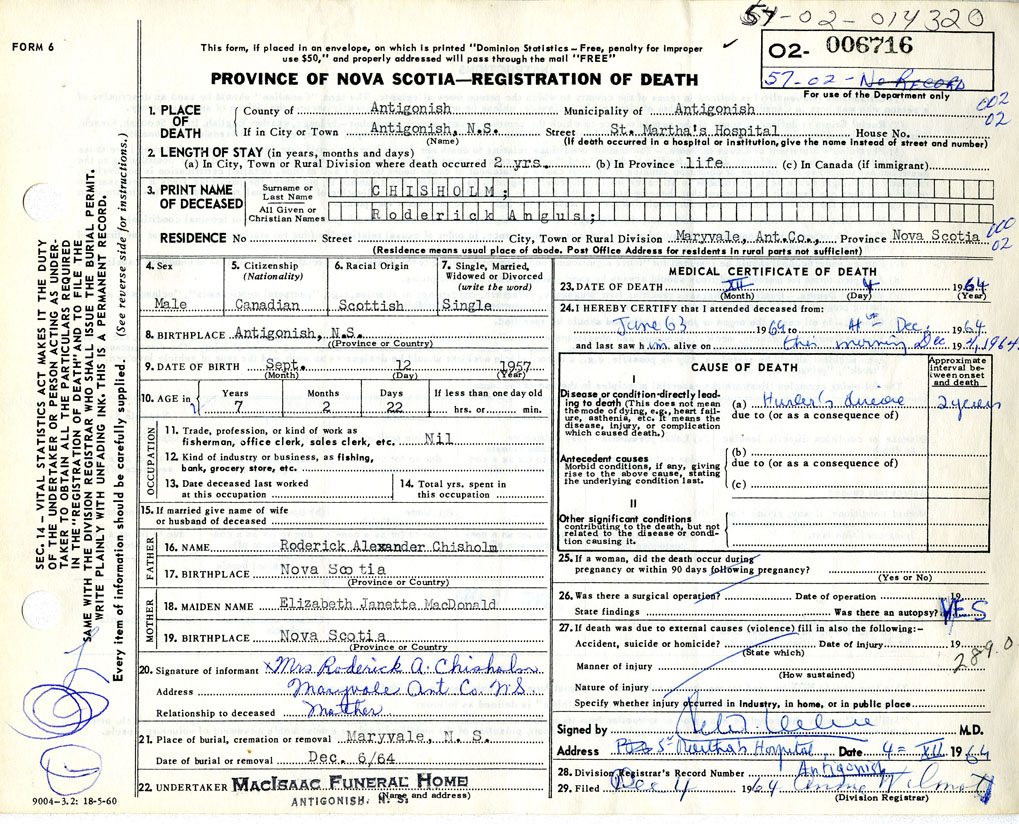 57-02-014320
FORM 6
This form, if placed in an envelope, on which is printed "Dominion Statistics – Free, penalty for improper
use $50," and properly addressed will pass through the mail "FREE"
✓
02- 006716
57-02-No Record
For use of the Department only
PROVINCE OF NOVA SCOTIA—REGISTRATION OF DEATH
SEC. 14 – VITAL STATISTICS ACT MAKES IT THE DUTY
OF THE UNDERTAKER OR PERSON ACTING AS UNDER-
TAKER TO OBTAIN ALL THE PARTICULARS REQUIRED
IN THE "REGISTRATION OF DEATH" AND TO FILE THE
SAME WITH THE DIVISION REGISTRAR WHO SHALL ISSUE THE BURIAL PERMIT.
WRITE PLAINLY WITH UNFADING INK. THIS IS A PERMANENT RECORD.
Every item of information should be carefully supplied. (See reverse side for instructions.)
1. PLACE OF DEATH
County of Antigonish Municipality of Antigonish
002
02
If in City or Town Antigonish, N.S. Street St. Martha's Hospital House No.
(Name) (If death occurred in a hospital or institution, give the name instead of street and number)
2. LENGTH OF STAY (in years, months and days)
(a) In City, Town or Rural Division where death occurred 2 yrs. (b) In Province life (c) In Canada (if immigrant)
3. PRINT NAME OF DECEASED
Surname or Last Name CHISHOLM;
All Given or Christian Names Roderick Angus;
RESIDENCE No Street City, Town or Rural Division Maryvale, Ant.Co., Province Nova Scotia
02
(Residence means usual place of abode. Post Office Address for residents in rural parts not sufficient)
4. Sex
Male
5. Citizenship
(Nationality)
Canadian
6. Racial Origin
Scottish
7. Single, Married,
Widowed or Divorced
(write the word)
Single
8. BIRTHPLACE Antigonish, N.S.
(Province or Country)
9. DATE OF BIRTH Sept. 12 1957
(Month) (Day) (Year)
10. AGE in
Years Months Days If less than one day old
7 2 22 hrs. or min.
OCCUPATION
11. Trade, profession, or kind of work as
fisherman, office clerk, sales clerk, etc. Nil
12. Kind of industry or business, as fishing,
bank, grocery store, etc.
13. Date deceased last worked
at this occupation
14. Total yrs. spent in
this occupation
15. If married give name of wife
or husband of deceased
FATHER
16. NAME Roderick Alexander Chisholm
17. BIRTHPLACE Nova Scotia
(Province or Country)
MOTHER
18. MAIDEN NAME Elizabeth Janette MacDonald
19. BIRTHPLACE Nova Scotia
(Province or Country)
20. Signature of informant x Mrs. Roderick A. Chisholm
Address Maryvale Ant Co. N.S.
Relationship to deceased Mother
21. Place of burial, cremation or removal Maryvale, N. S.
Date of burial or removal Dec. 6/64
22. UNDERTAKER MACISAAC FUNERAL HOME
(Name and address)
ANTIGONISH, N. S.
9004-3.2: 18-5-60
MEDICAL CERTIFICATE OF DEATH
23. DATE OF DEATH XII 4 1964
(Month) (Day) (Year)
24. I HEREBY CERTIFY that I attended deceased from:
June 63 1964 to 4th Dec. 1964
and last saw him alive on this morning Dec 4, 1964
CAUSE OF DEATH
Approximate
interval be-
tween onset
and death
I
Disease or condition directly lead-
ing to death (This does not mean
the mode of dying, e.g., heart fail-
ure, asthenia, etc. It means the
disease, injury, or complication
which caused death.)
(a) Hurler's disease 2 years
due to (or as a consequence of)
Antecedent causes
Morbid conditions, if any, giving
rise to the above cause, stating
the underlying condition last.
(b)
due to (or as a consequence of)
(c)
II
Other significant conditions
contributing to the death, but not
related to the disease or condi-
tion causing it.
25. If a woman, did the death occur during
pregnancy or within 90 days following pregnancy?
(Yes or No)
26. Was there a surgical operation? Date of operation 19
State findings Was there an autopsy? YES
27. If death was due to external causes (violence) fill in also the following:–
Accident, suicide or homicide? Date of injury 19
(State which)
289.0
Manner of injury
(How sustained)
Nature of injury
Specify whether injury occurred in Industry, in home, or in public place
Signed by M.D.
Address St Martha's Hospital Date 4= XII 1964
28. Division Registrar's Record Number Antigonish
29. Filed Dec 4 1964
(Division Registrar)